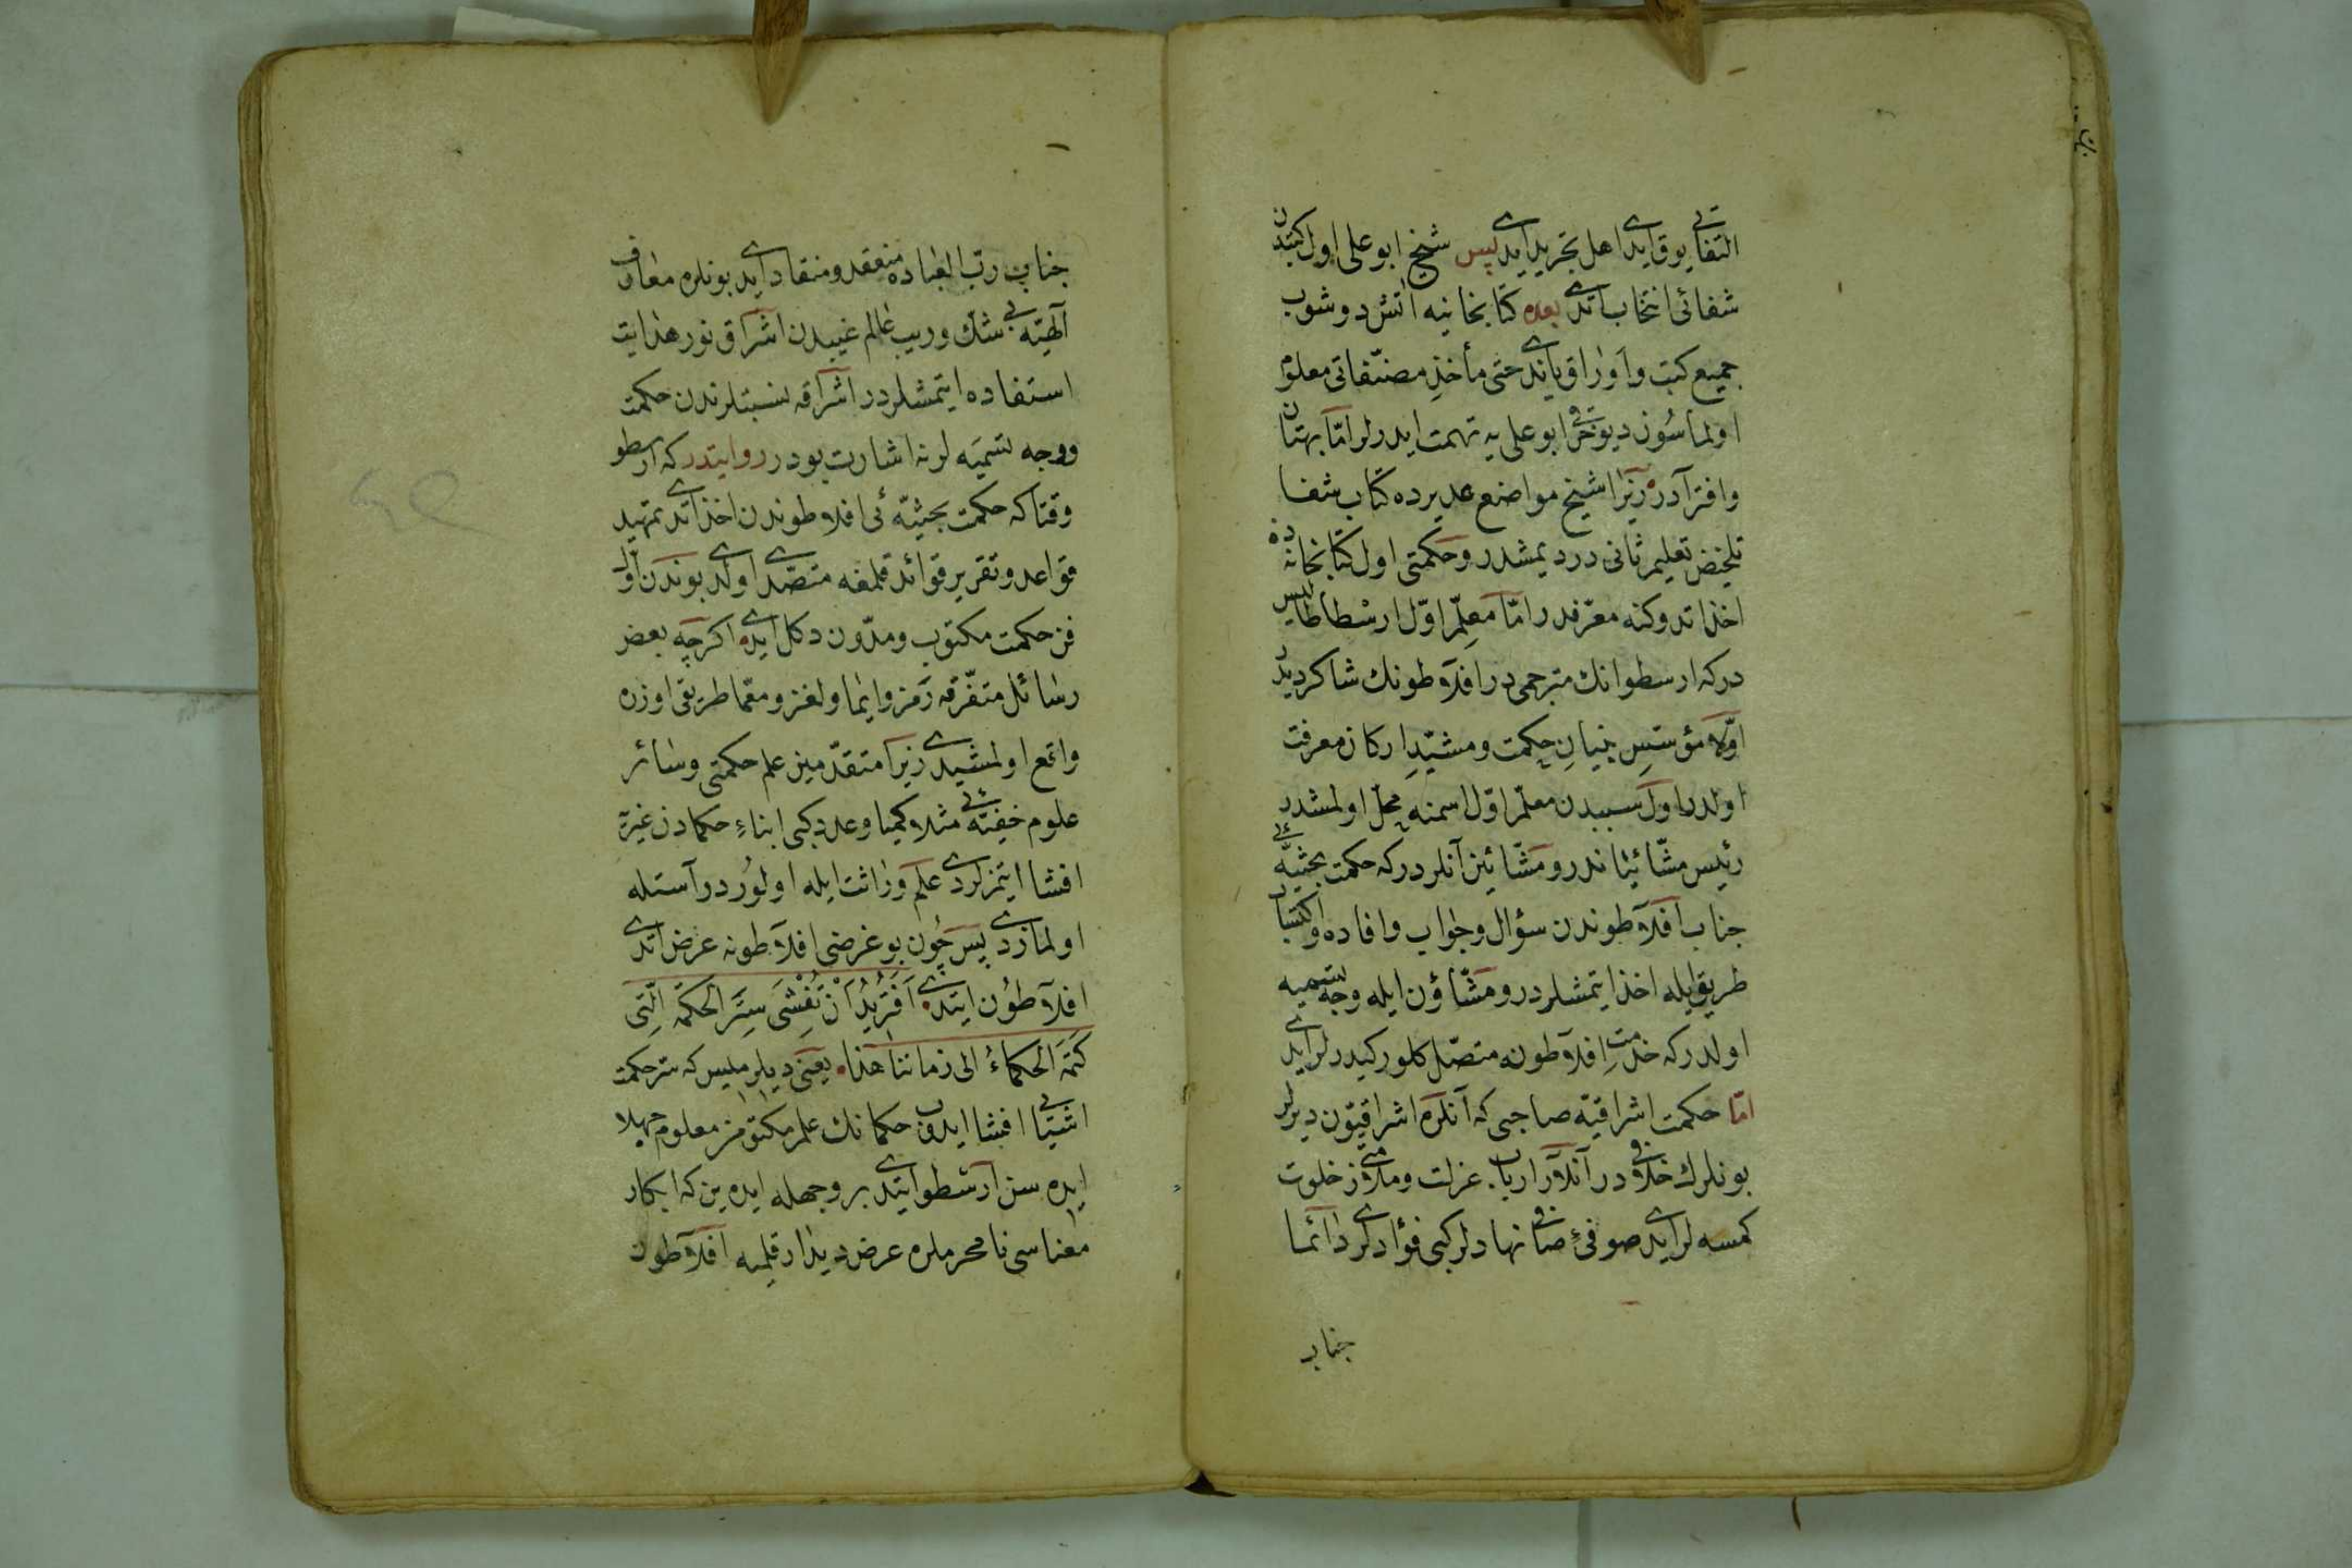 التفاتی یوق ایدی اهل تجرید ایدی پس شیخ ابو علی اول کتبدن
شفائی انتخاب اتدی بعده کتابخانیه آتش دوشوب
جمیع کتب و اوراق یاندی حتی مأخذ مصنّفاتی معلوم
اولماسُون دیو ابو علی یه تهمت ایدرلر امّا بهتان
وافترادر زیرا شیخ مواضع عدیده کتاب شفا
تلخیص تعلیم ثانی در دیمشدر و حکمتی اول کتابخانه ده
اخذ اتدوکنه معترفدر امّا معلّم اوّل ارسطاطالیس
درکه ارسطو انك مترجمی در افلاطونك شاکردیدر
اوّلا مؤسّسِ بنیانِ حکمت و مشیّدِ ارکان معرفت
اولدر اول سببدن معلّم اوّل اسمنه محلّ اولمشدر
رئیس مشّائیاندر و مشّائین آنلردرکه حکمت بحثیّه یی
جناب افلاطوندن سؤال و جواب و افاده و اکتساب
طریقی ایله اخذ ایتمشلردر و مشّاؤن ایله وجه تسمیه
اولدرکه خدمتِ افلاطونه متصّل کلور کیدرلر ایدی
امّا حکمت اشراقیّه صاحبی که آنلره اشراقیّون دیرلر
بونلرك خلافی در آنلر ارباب عزلت و ملازمتی خلوت
کمسه لر ایدی صوفیِٔ صافی نهادلر کبی فؤادلری دائما
جناب
جناب ربّ العباده منعقد و منقاد ایدی بونلره معارف
آلهیّه یی شك و ریب عالم غیبدن اشراق نور هدایت
استفاده ایتمشلردر اشراقه نسبتلرندن حکمت
و وجه تسمیه لرنه اشارت بودر روایتدر که ارسطو
وقتاکه حکمت بحثیّه ئی افلاطوندن اخذ اتدی تمهید
قواعد و تقریر فوائد قلمغه متصدّی اولدی بوندن اوّل
فن حکمت مکتوب و مدّون دکل ایدی اکرچه بعض
رسائل متفرّقه رمز و ایما و لغز و معمّا طریقی اوزره
واقع اولمشیدی زیرا متقدّمین علم حکمتی و سائر
علوم خفیّه یی مثلا کیمیا و عدد کبی ابناءِ حکمادن غیره
افشا ایتمزلردی علم وراثت ایله اولوُر در آستله
اولمازدی پس چُون بو غرضی افلاطونه عرض اتدی
افلاطوُن ایتدی اَفَتُرِیدُ اَنْ تُفْشِیَ سِرَّ الحکمة الّتی
کَتَمَ الحکماءُ الی زماننا هذا یعنی دیلر میسن که سرّ حکمت
اشیایی افشا ایدوب حکمانك علم مکتومن معلوم جهلا
ایده سن ارسطو ایتدی بر وجهله ایده ین که ابکار
معناسی نامحرملره عرض دیدار قلمیه افلاطون